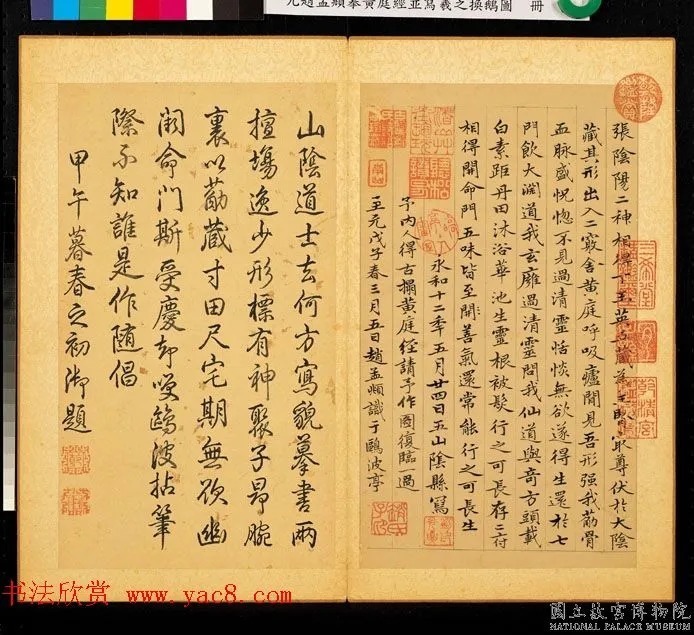 元趙孟頫摹黃庭經並寫羲之換鵝圖 冊
張陰陽二神相得下玉英五藏為主腎最尊伏於大陰
藏其形出入二竅舍黃庭呼吸廬間見吾形強我筋骨
血脉盛怳惚不見過清靈恬惔無欲遂得生還於七
門飲大淵道我玄廱過清靈問我仙道與奇方頭載
白素距丹田沐浴華池生靈根被髮行之可長存二府
相得開命門五味皆至開善氣還常能行之可長生
永和十二年五月廿四日五山陰縣寫
予內人得古搨黃庭經請予作圖復臨一過
至元戊子春三月五日趙孟頫識于鷗波亭
山陰道士去何方寫貌摹書兩
擅場逸少形標有神聚子昂腕
裏以筋藏寸田尺宅期無欲幽
闕命門斯受慶却嘆鷗波拈筆
際不知誰是作隨倡
甲午暮春之初御題
三希堂
乾清宮
趙氏子昂
书法欣赏 www.yac8.com
國立故宮博物院
NATIONAL PALACE MUSEUM